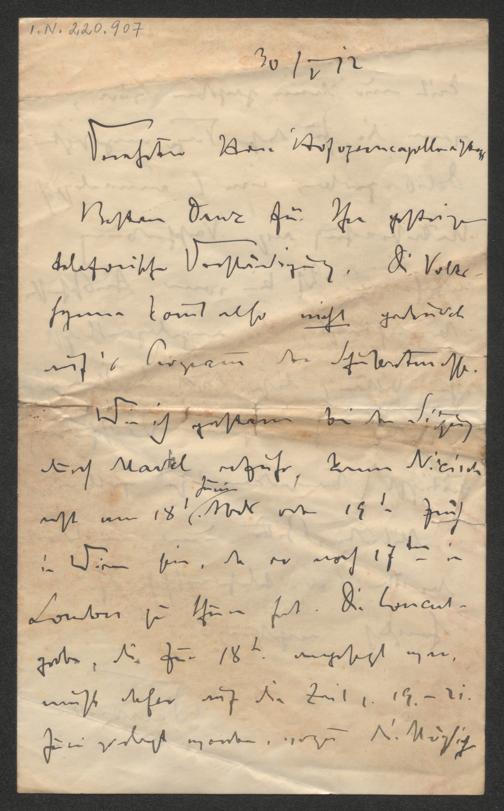 I.N. 220.907
30/V 12
Verehrter Herr Hofoperncapellmeister
Besten Dank für Ihre gestrige
telefonische Verständigung. Die Volks-
hymne kommt also nicht gedruckt
auf's Programm der Schubertmesse.
Wie ich gestern bei der Sitzung
durch erfuhr, kann Nikisch
erst am 18t. Juni oder 19t. früh
in Wien sein, da er noch 17ten in
London zu thun hat. Die Concert-
probe, die für 18t. angesetzt war,
muß daher auf die Zeit v. 19.–21.
Juni verlegt werden, wozu die